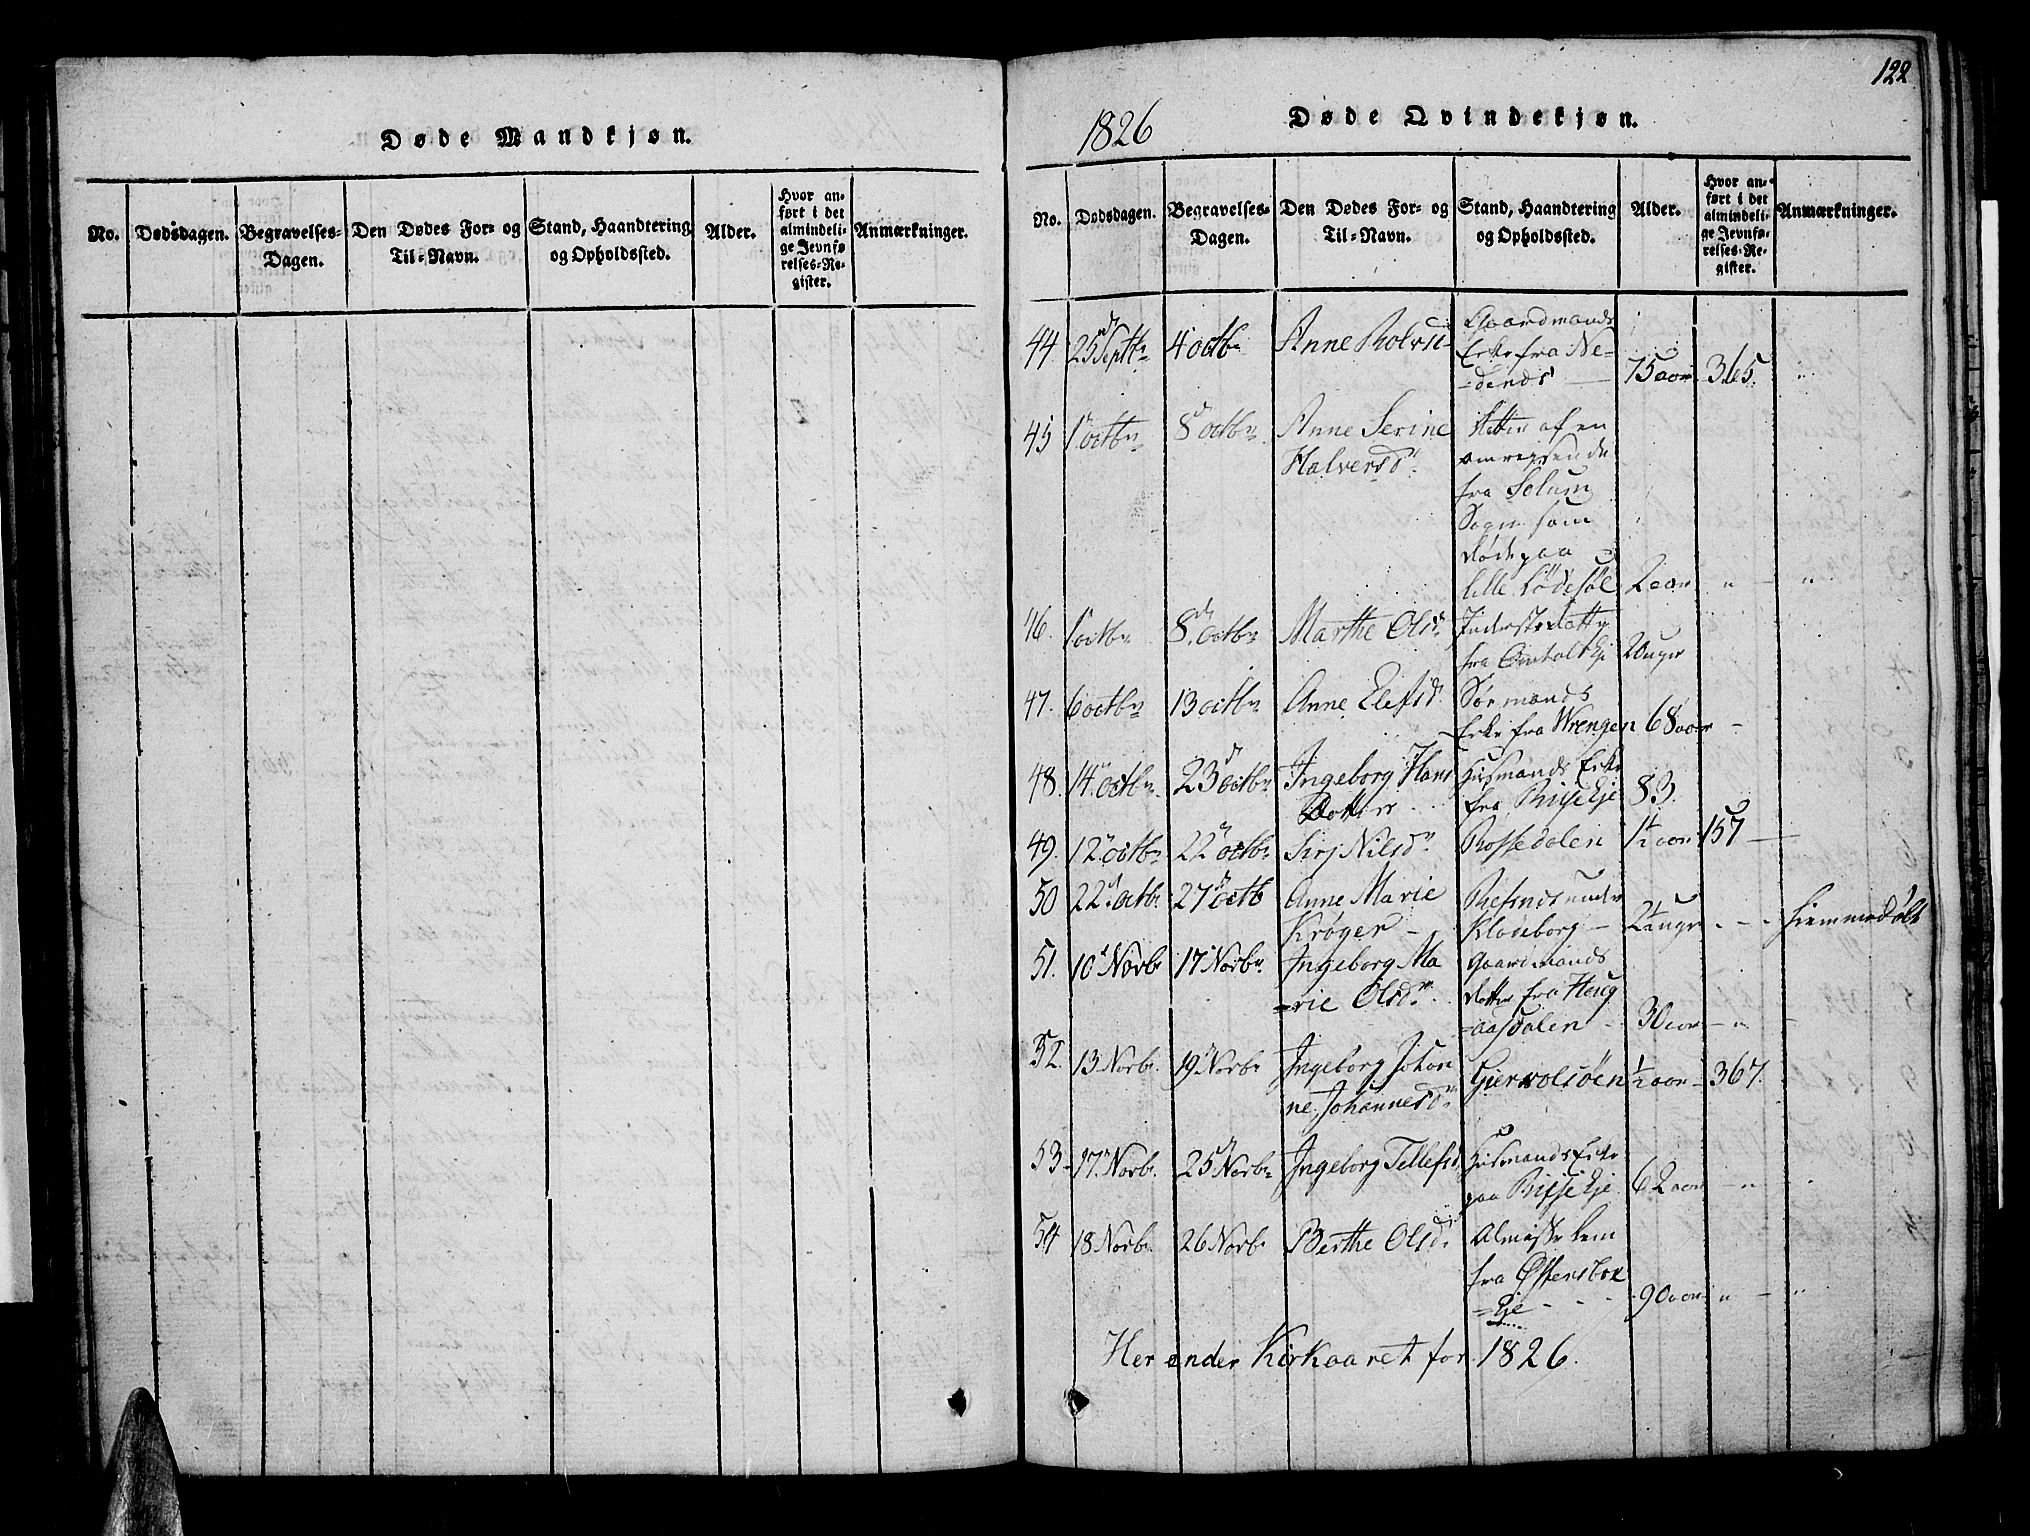 122
Døde Mandkjøn.
No.
Dødsdagen.
Begravelses-
Dagen.
Den Dødes For- og
Til-Navn.
Stand, Haandtering
og Opholdssted.
Alder.
Hvor an-
ført i det
almindeli-
ge Jevnfø
relses-Re-
gister.
Anmærkninger.
1826
Døde Qvindekjøn.
No.
Dødsdagen.
Begravelses-
Dagen.
Den Dødes For- og
Til-Navn.
Stand, Haandtering
og Opholdssted.
Alder.
Hvor an-
ført i det
almindeli-
ge Jevnfø-
relses-Re-
gister.
Anmærkninger.
44 25 Septbr 4 octbr Anne Rolvsd
Gaardmands
Enke fra Ne-
=denes 75 aar 365
45 1 octbr 8 octbr Anne Serine
Halversdr
Datter af en
omreisende
fra Solum
Sogn som
døde paa
lille 2 aar
46. 1 octbr 8 octbr Marthe Olsdr
Inderstdatter
fra Eje 20 uger
47. 6 octbr 13 octbr Anne Elefsdr
mands
Enke fra Wrengen 68 aar -
48. 14 octbr 23 octbr Ingeborg Hans
Dotter
Husmands Enke
fra Risse Eje 83.
49. 12 octbr 22 octbr Sirj Nilsdr Rossedalen 1½ aar 157
50 22 octbr 27 octb Anne Marie
Krøger -
Resnes under
Klødeborg - 2½ uger - - - hiemmedøbt
51. 10 Novbr 17 Novbr Ingeborg Ma
=rie Olsdr
Gaardmands
datter fra Heug
=aasdalen - 30 aar - " -
52. 13 Novbr. 19 Novbr Ingeborg Johan
ne, Johannesdr
Gierwolsøen ½ aar - 367.
53 - 17 Novbr. 25 Novbr Ingeborg Tellefsd
Husmands Enke
paa Risse Eje 62 aar - "
54 18 Novbr. 26 Novbr Berthe Olsdr
Almisse lem
fra Østensbøe
=Eje - - - 90 aar - " - "
Her ender Kirkaaret for 1826.